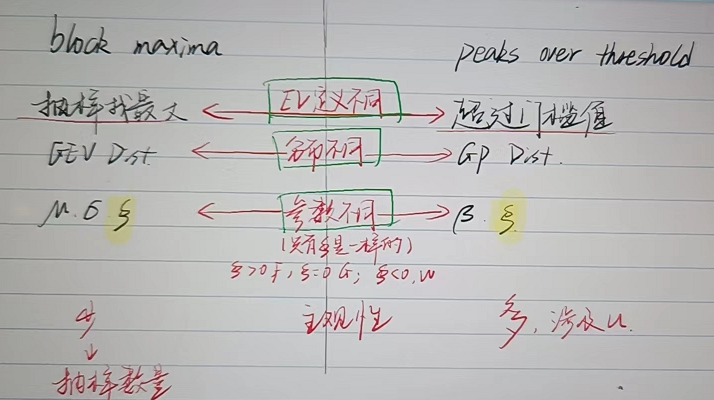 block maxima peaks over threshold
抽样找最大 EV定义不同 超过门槛值
GEV Dist. 分布不同 GP Dist.
μ. σ ξ 参数不同 β. ξ
(只有ξ是一样的)
ξ>0 F, ξ=0 G; ξ<0, W
少 主观性 多, 涉及u.
↓
抽样数量